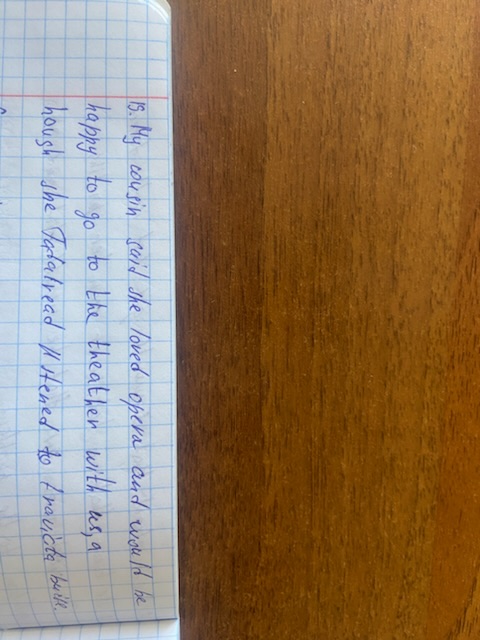 15. My cousin said she loved opera and would be
happy to go to the theather with us, a
hough she listened to